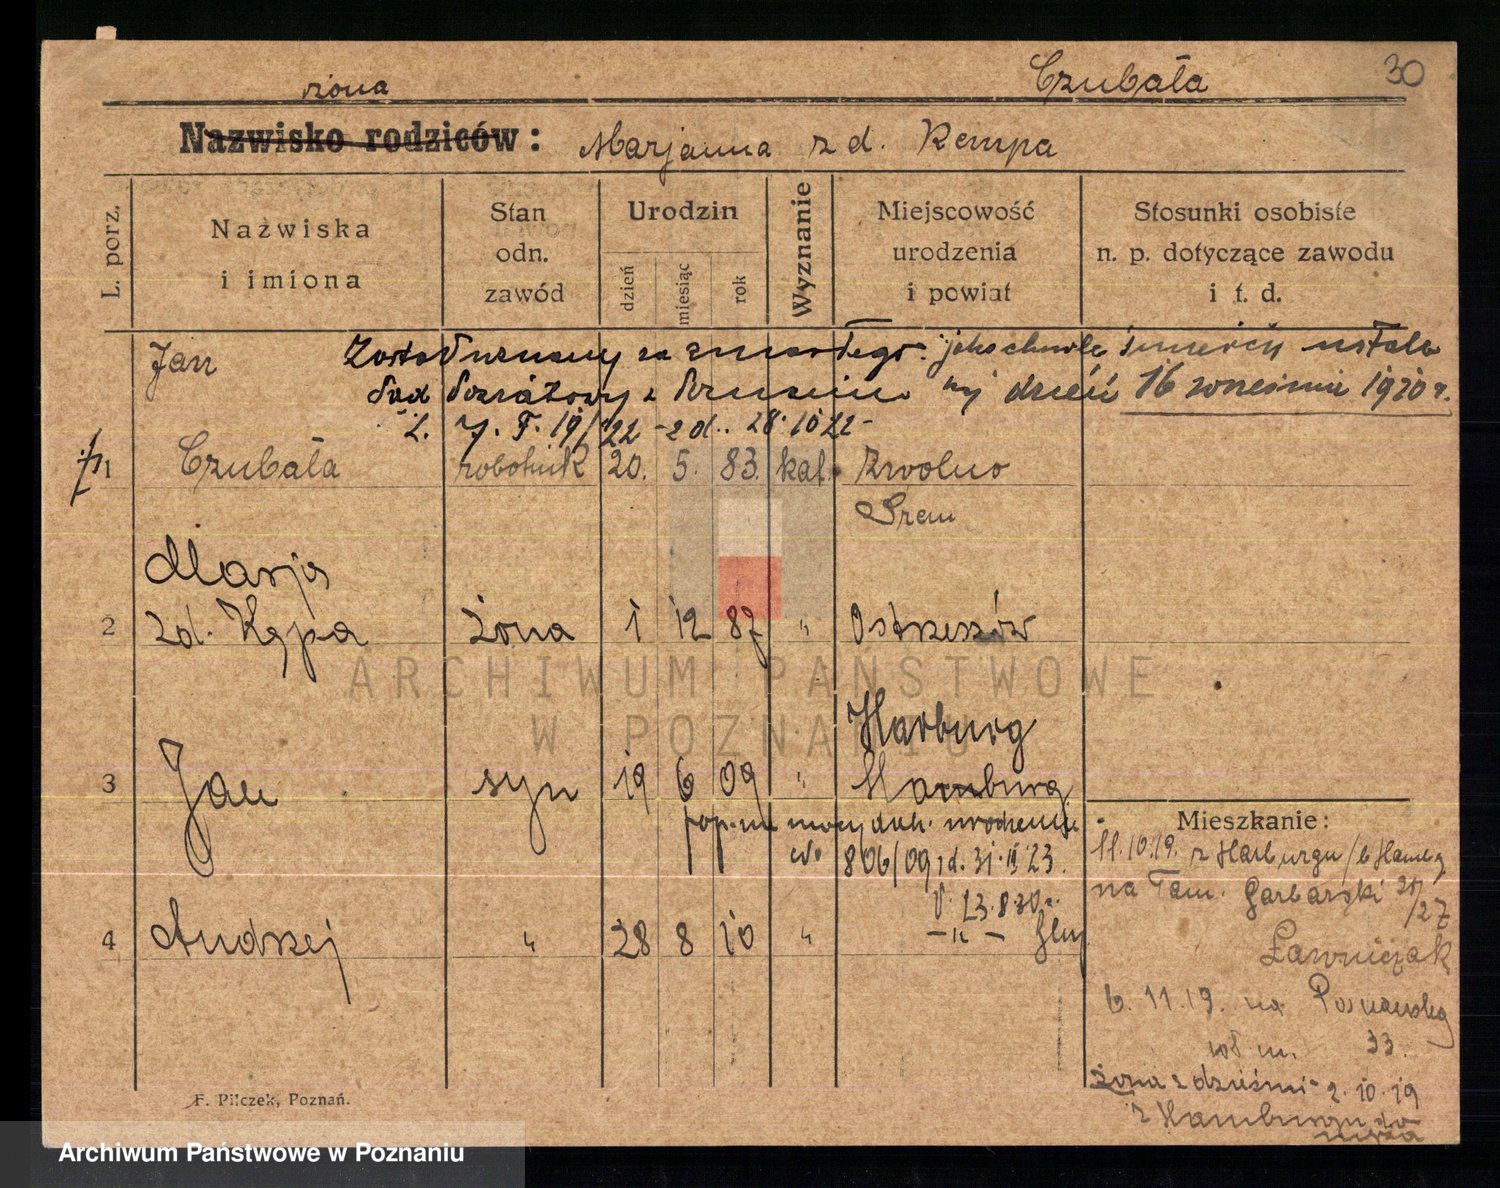 żona Czubała 30
Nazwisko rodziców: Marjanna z d. Kempa
L. porz.
Nazwiska
i imiona
Stan
odn.
zawód
Urodzin
dzień
miesiąc
rok
Wyznanie
Miejscowość
urodzenia
i powiat
Stosunki osobiste
n. p. dotyczące zawodu
i t. d.
Jan
Został uznany za zmarłego. jako chwilę śmierci ustala
Sąd Powiatowy w Poznaniu dzień 16 września 1920 r.
L. 7. F. 19/22 z d. 28.10.22
1 Czubała robotnik 20. 5. 83. kat. Zwolno
Śrem
Marja
2 zd. Kępa żona 1 12 87 " Ostrzeszów
ARCHIWUM PAŃSTWOWE
W POZNANIU
Harburg
3 Jan syn 19 6 09 " Hamburg
urodzenia
No 806/09 z d. 31. 23.
V. 23.8.30.
4 Andrzej " 28 8 10 " — " —
Mieszkanie:
11.10.19. z Harburgu / b Hambg
na Tam. Garbarski 25/27
Ławniczak
6. 11. 19. na
33.
żona z dziećmi 2.10.19
z Hamburgu do
męża
F. Pilczek, Poznań.
Archiwum Państwowe w Poznaniu